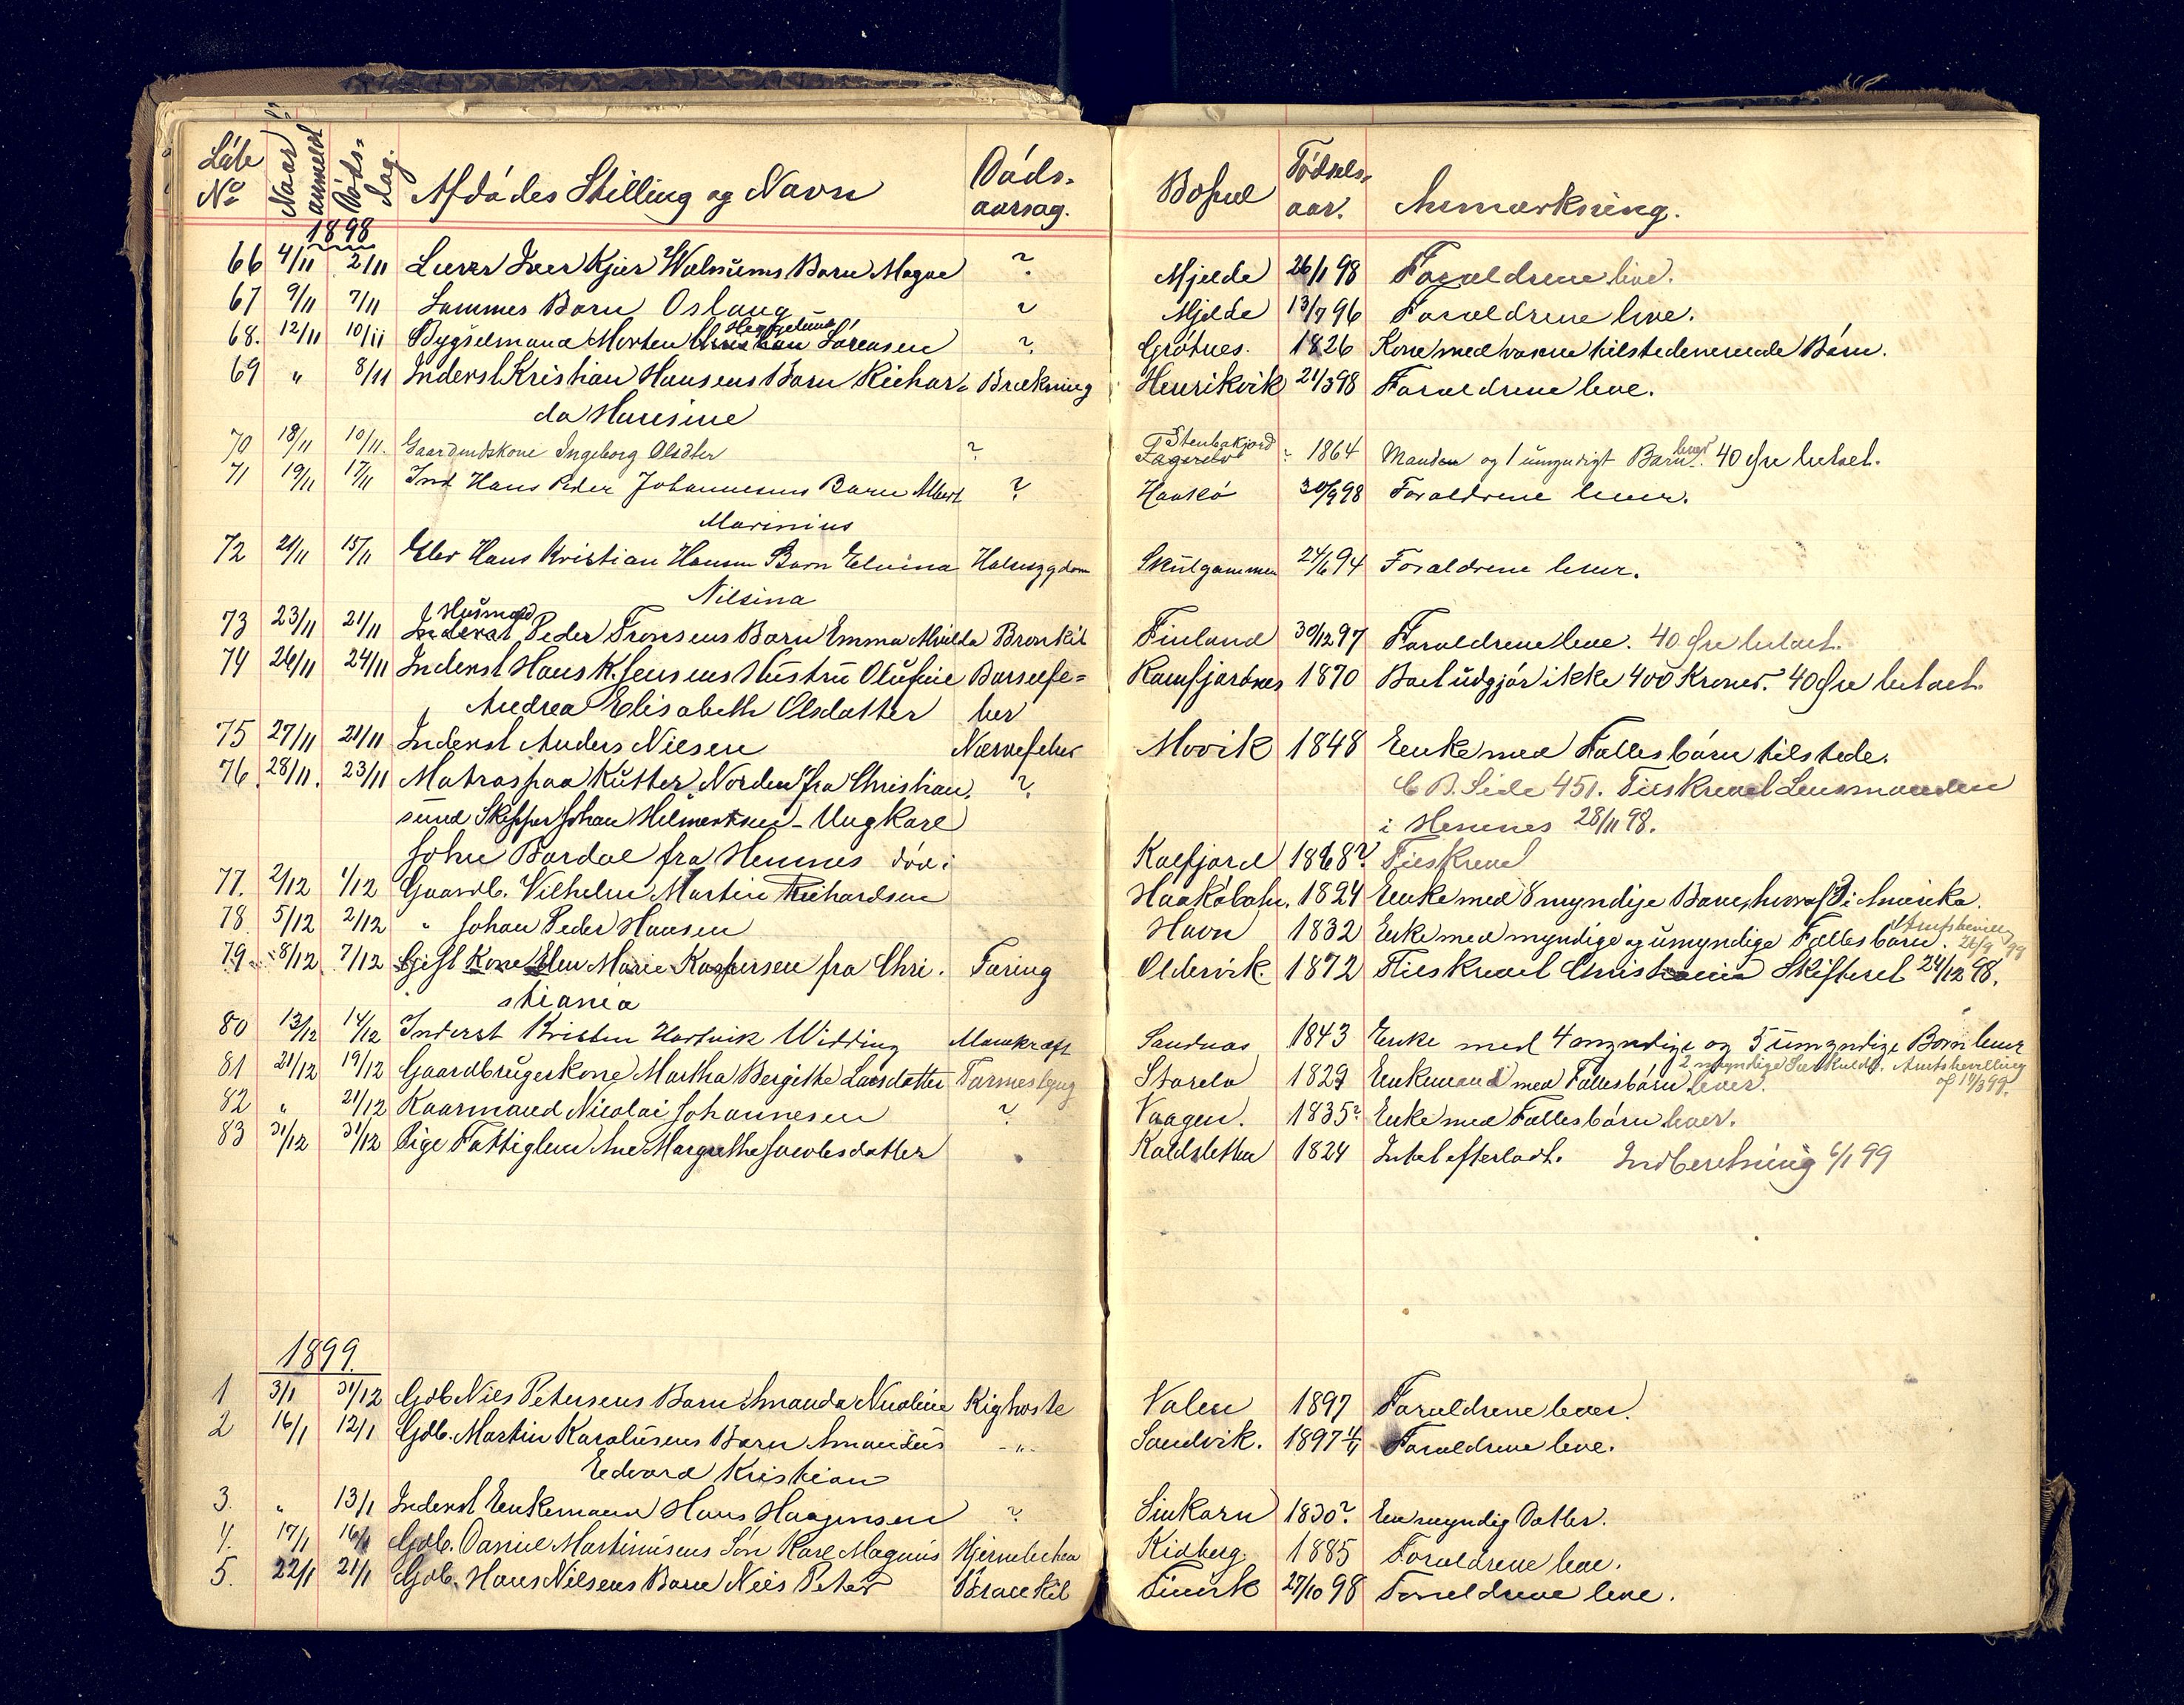 Løbe No Naar anmeldt Døds-dag. Afdødes Stilling og Navn Døds-aarsag. Bopæl Fødsels-aar. Anmærkning.
1898
66 4/11 2/11 Lærer Iver Kjær Barn Magne ? Mjelde 26/1 98 Forældrene leve.
67 9/11 7/11 Sammes Barn Oslaug ? Mjelde 13/7 96 Forældrene leve.
68. 12/11 10/11 Bygselmand Morten Sørensen ? Grøtnes. 1826 Kone med voxne tilstedeværende Børn.
69 " 8/11 Inderst Kristian Hansens Barn Richar- Brækning Henrikvik 21/3 98 Forældrene leve.
da Hansine
70 18/11 10/11. Gaardmdskone Ingeborg Olsdtr ? Stenbakjord 1864 Manden og 1 umyndigt Barn lever. 40 Øre betalt.
71 19/11 17/11 Ind Hans Peder Johannesens Barn Albert ? Haakø 30/9 98 Forældrene lever.
Marinius
72 21/11 15/11 Elev Hans Kristian Hansen Barn Elvina Halssygdom Skulgammen 24/6 94 Forældrene lever.
Nilsina
Husmd
73 23/11 21/11 Inderst Peder Fransens Barn Emma Bronkit Finland 30/12 97 Forældrene leve. 40 Øre betalt.
74 26/11 24/11 Inderst Hans K. Jensens Hustru Olufine Barselfe= Ramfjordnes 1870 Boet udgjør ikke 400 Kroner. 40 Øre betalt.
Andrea Elisabeth Olsdatter ber
75 27/11 21/11 Inderst Anders Nilsen Nervefeber Movik 1848 Enke med Fællesbørn tilstede.
76. 28/11. 23/11 Matros paa Kutter "Norden" fra Christian. ? C B. Side 451. Tilskrevet Lensmanden
sund Skipper Johan Hilmertsen - Ungkarl i Hemnes 28/11 98.
John Bardal fra Hemnes død i Kalfjord 1868? Tilskrevet
77. 2/12 1/12 Gaardb. Vilhelm Martin Richardsen Haakøbotn. 1824 Enke med 8 myndige Børn, hvoraf i Amerika.
78 5/12 2/12 " Johan Peder Hansen Havn 1832 Enke med myndige og umyndige Fællesbørn.
79. 8/12 7/12 Gift Kone Elen Marie Kaspersen fra Chri. Tæring Oldervik. 1872 Tilskrevet Christiania Skifteret 24/12 98.
stiania
80 13/12 14/12 Inderst Kristen Hartvik Widding Sandnæs 1843 Enke med 4 myndige og 5 umyndige Børn lever
81 21/12 19/12 Gaardbrugerskone Martha Bergithe Larsdatter Tarmeslyng Storelv 1829 Enkemand med Fællesbørn lever. 2 myndige Særkuldb. Amtsbevilling
82 " 21/12 Kaarmand Nicolai Johannesen ? Vaagen. 1835? Enke med Fællesbørn lever.
83 31/12 31/12 Pige Fattiglem Ane Margrethe Jacobsdatter Kaldsletten 1824 Intet efterladt. Indberetning 6/1 99
1899.
1 3/1 31/12 Gdb Nils Petersens Barn Amanda Nicoline Kighoste Valen 1897 Forældrene lever.
2 16/1 12/1 Gdb. Martin Karolusens Barn Amandus - " - Sandvik. 1897 Forældrene leve.
Edvard Kristian
3. " 13/1 Inderst Enkemand Hans Haagensen ? 1830? En myndig Datter.
4. 17/1 16/1 Gdb. Daniel Martinusens Søn Karl Magnus Kidberg. 1885 Forældrene leve.
5. 22/1 21/1 Gdb. Hans Nilsens Barn Nils Peter Bronkit 27/10 98 Forældrene leve.